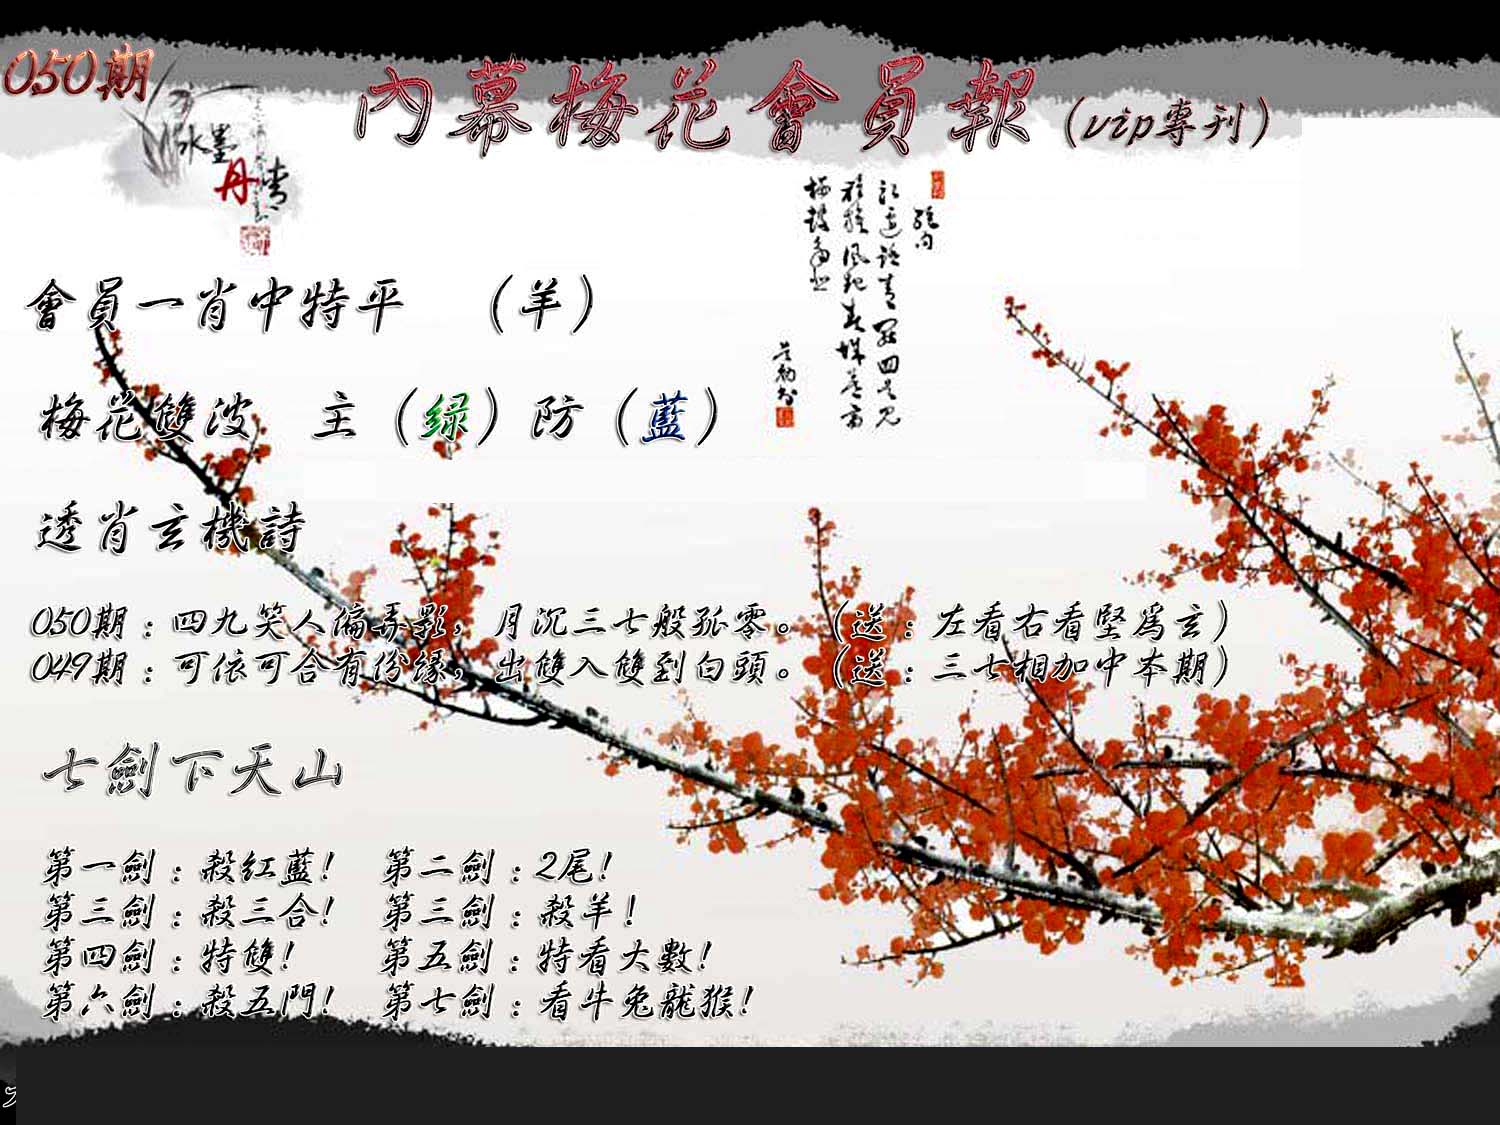 050期
內幕梅花會員報（vip專刊）
水墨
丹青
會員一肖中特平　（羊）
梅花雙波　主（綠）防（藍）
透肖玄機詩
050期：四九笑人偏弄影，月沉三七般孤零。（送：左看右看堅為玄）
049期：可依可合有份緣，出雙入雙到白頭。（送：三七相加中本期）
七劍下天山
第一劍：殺紅藍！　第二劍：2尾！
第三劍：殺三合！　第三劍：殺羊！
第四劍：特雙！　第五劍：特看大數！
第六劍：殺五門！　第七劍：看牛兔龍猴！